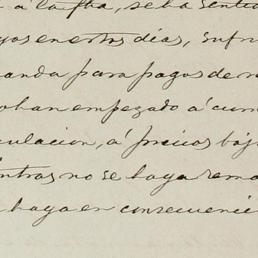 á la fha, se ha sentid
yos en estos dias, sufri
manda para pagos de
ohan empezado á cum
culacion, á precios baj
éntras no se haya rema
haya en consecuencia